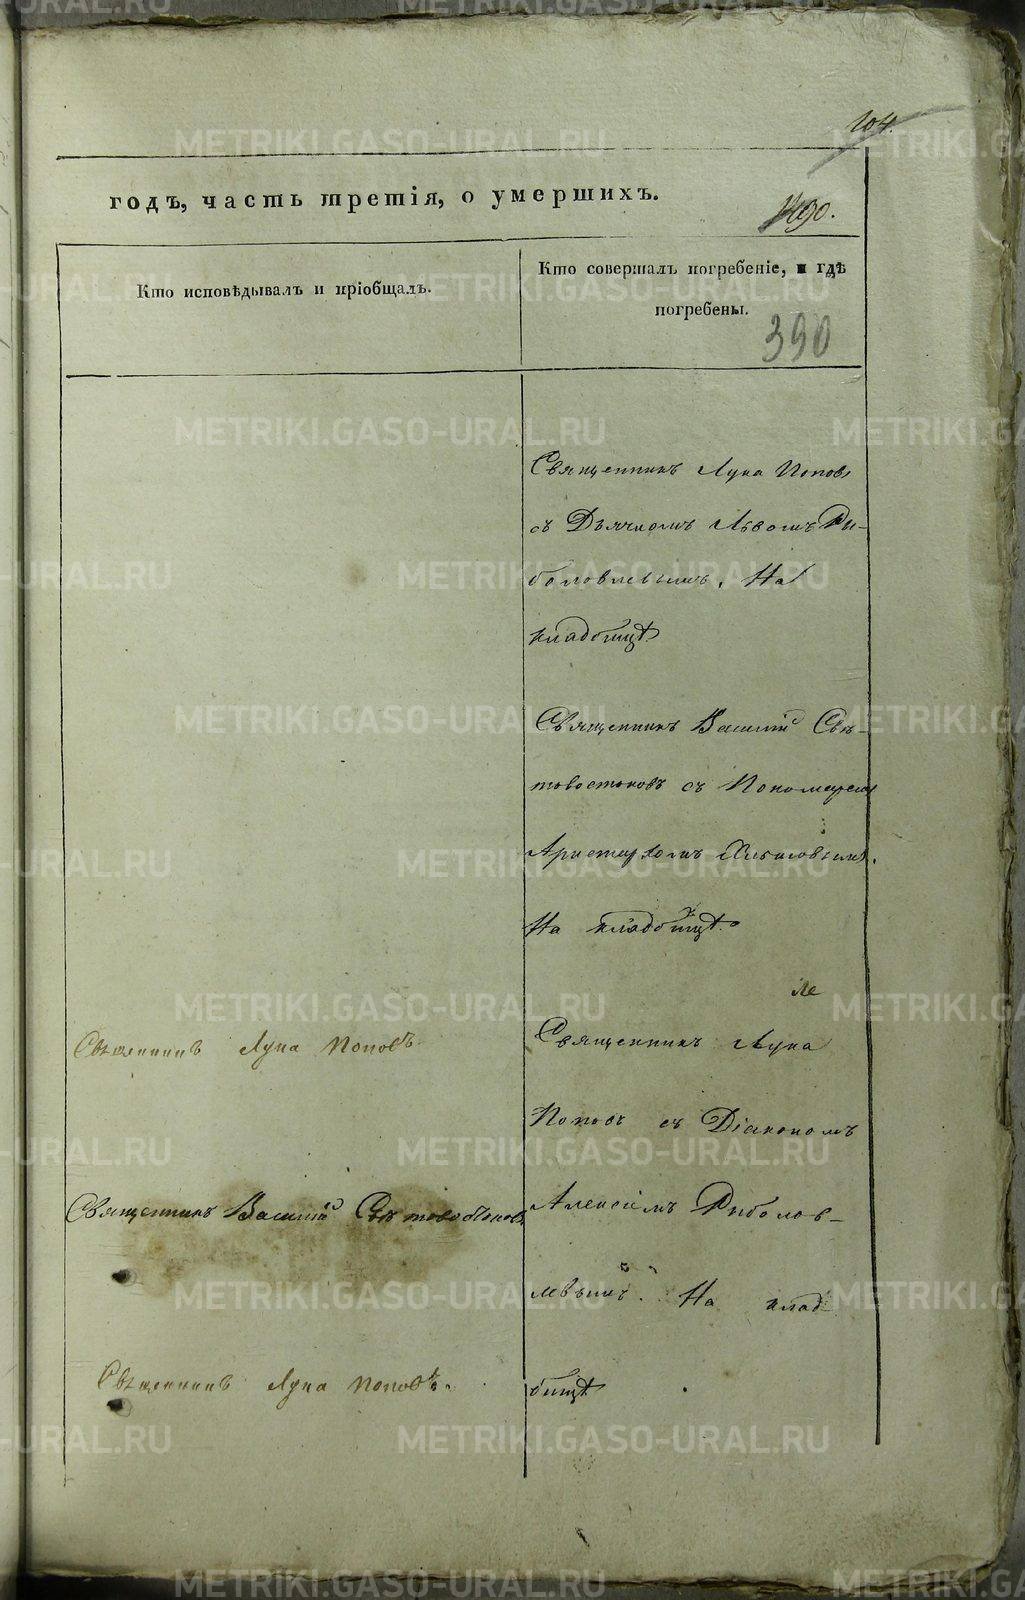 104.
годъ, часть третія, о умершихъ.
Кто исповѣдывалъ и пріобщалъ.
Кто совершалъ погребеніе, и гдѣ
погребены.
390
Священникъ Лука Поповъ
съ Дьячкомъ Львомъ Ры-
боловлевымъ. На
кладбищѣ
Священникъ Василій Свѣ-
товостоковъ съ Пономаремъ
Аристархомъ
На кладбищѣ.
Священникъ Лука Поповъ
Священникъ Лука
Поповъ съ Діакономъ
Священникъ Василій Свѣтовостоковъ
Алексѣемъ Рыболов-
левымъ. На клад
Священникъ Лука Поповъ.
бищѣ
METRIKI.GASO-URAL.RU